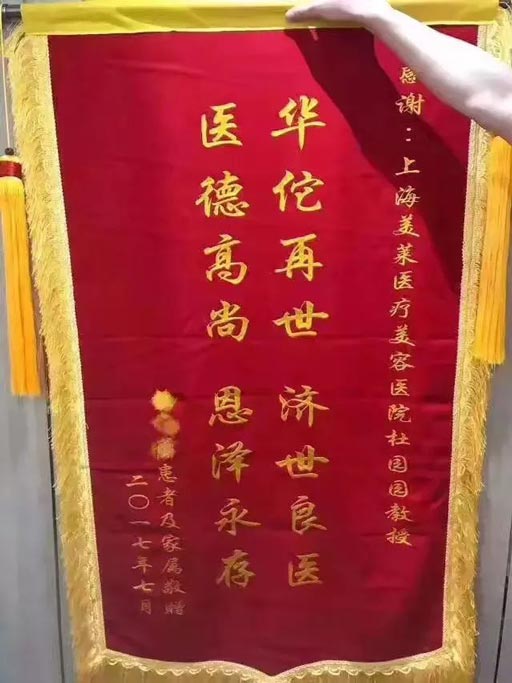 感谢：上海美莱医疗美容医院杜园园教授
华佗再世 济世良医
医德高尚 恩泽永存
患者及家属敬赠
二〇一七年七月